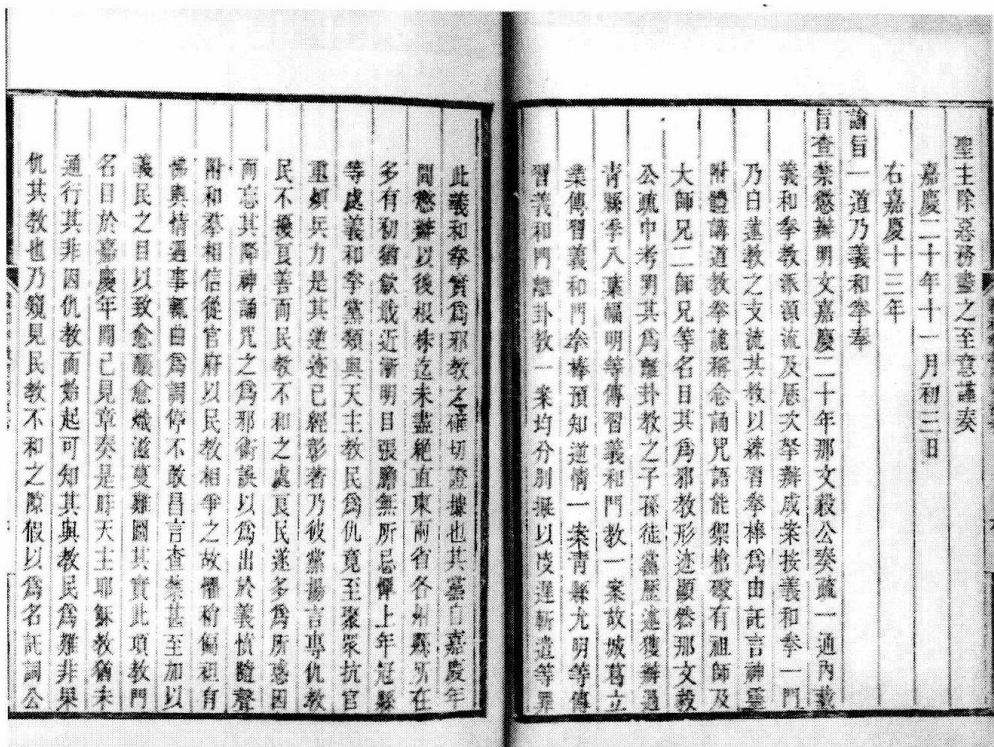 聖主除惡務盡之至意謹奏
嘉慶二十年十一月初三日
右嘉慶十三年
諭旨一道乃義和拳奉
旨查禁懲辦明文嘉慶二十年那文毅公奏疏一通內載
義和拳教派源流及歷次拏辦成案按義和拳一門
乃白蓮教之支流其教以練習拳棒為由託言神靈
附體講道教拳詭稱念誦咒語能禦槍礮有祖師及
大師兄二師兄等名目其為邪教形迹顯然那文毅
公疏中考明其為離卦教之子孫徒黨歷述獲辦過
青縣季八葉幅明等傳習義和門教一案故城葛立
業傳習義和門拳棒預知道情一案青縣尤明等傳
習義和門離卦教一案均分別擬以凌遲斬遣等罪
此義和拳實為邪教之確切證據也其黨自嘉慶年
間懲辦以後根株迄未盡絕直東兩省各州縣所在
多有初猶斂戢近漸明目張膽無所忌憚上年冠縣
等處義和拳黨類與天主教民為仇竟至聚眾抗官
重煩兵力是其逆迹已經彰著乃彼黨揚言專仇教
民不擾良善而民教不和之處良民遂多為所惑因
而忘其降神誦咒之為邪術誤以為出於義憤隨聲
附和羣相信從官府以民教相爭之故懼涉偏袒有
拂輿情遇事輒曲為調停不敢昌言查禁甚至加以
義民之目以致愈釀愈熾滋蔓難圖其實此項教門
名目於嘉慶年間已見章奏是時天主耶穌教猶未
通行其非因仇教而始起可知其與教民為難非果
仇其教也乃窺見民教不和之隙假以為名託詞公